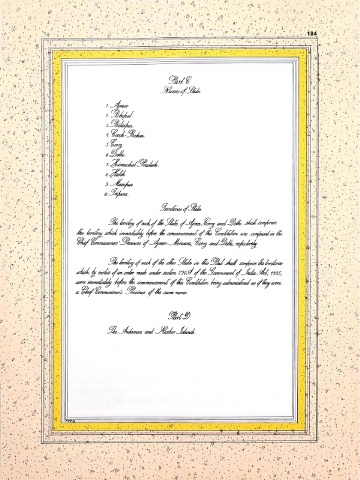 184
Part C
Names of State
1. Ajmer
2. Bhopal
3. Bilaspur
4. Cooch-Behar
5. Coorg
6. Delhi
7. Himachal Pradesh
8. Kutch
9. Manipur
10. Tripura
Territories of State
The territory of each of the States of Ajmer, Coorg and Delhi shall comprise
the territory which immediately before the commencement of this Constitution was comprised in the
Chief Commissioner's Province of Ajmer-Merwara, Coorg and Delhi, respectively.
The territory of each of the other States in this Part shall comprise the territories
which, by virtue of an order made under section 290A of the Government of India Act, 1935,
were immediately before the commencement of this Constitution being administered as if they were
a Chief Commissioner's Province of the same name.
Part D
The Andaman and Nicobar Islands.